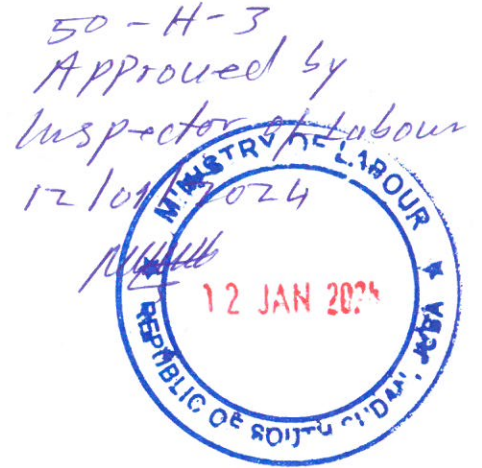 50-H-3
Approved by
Inspector of Labour
12/01/2024
MINISTRY OF LABOUR
12 JAN 2024
REPUBLIC OF SOUTH SUDAN, JUBA